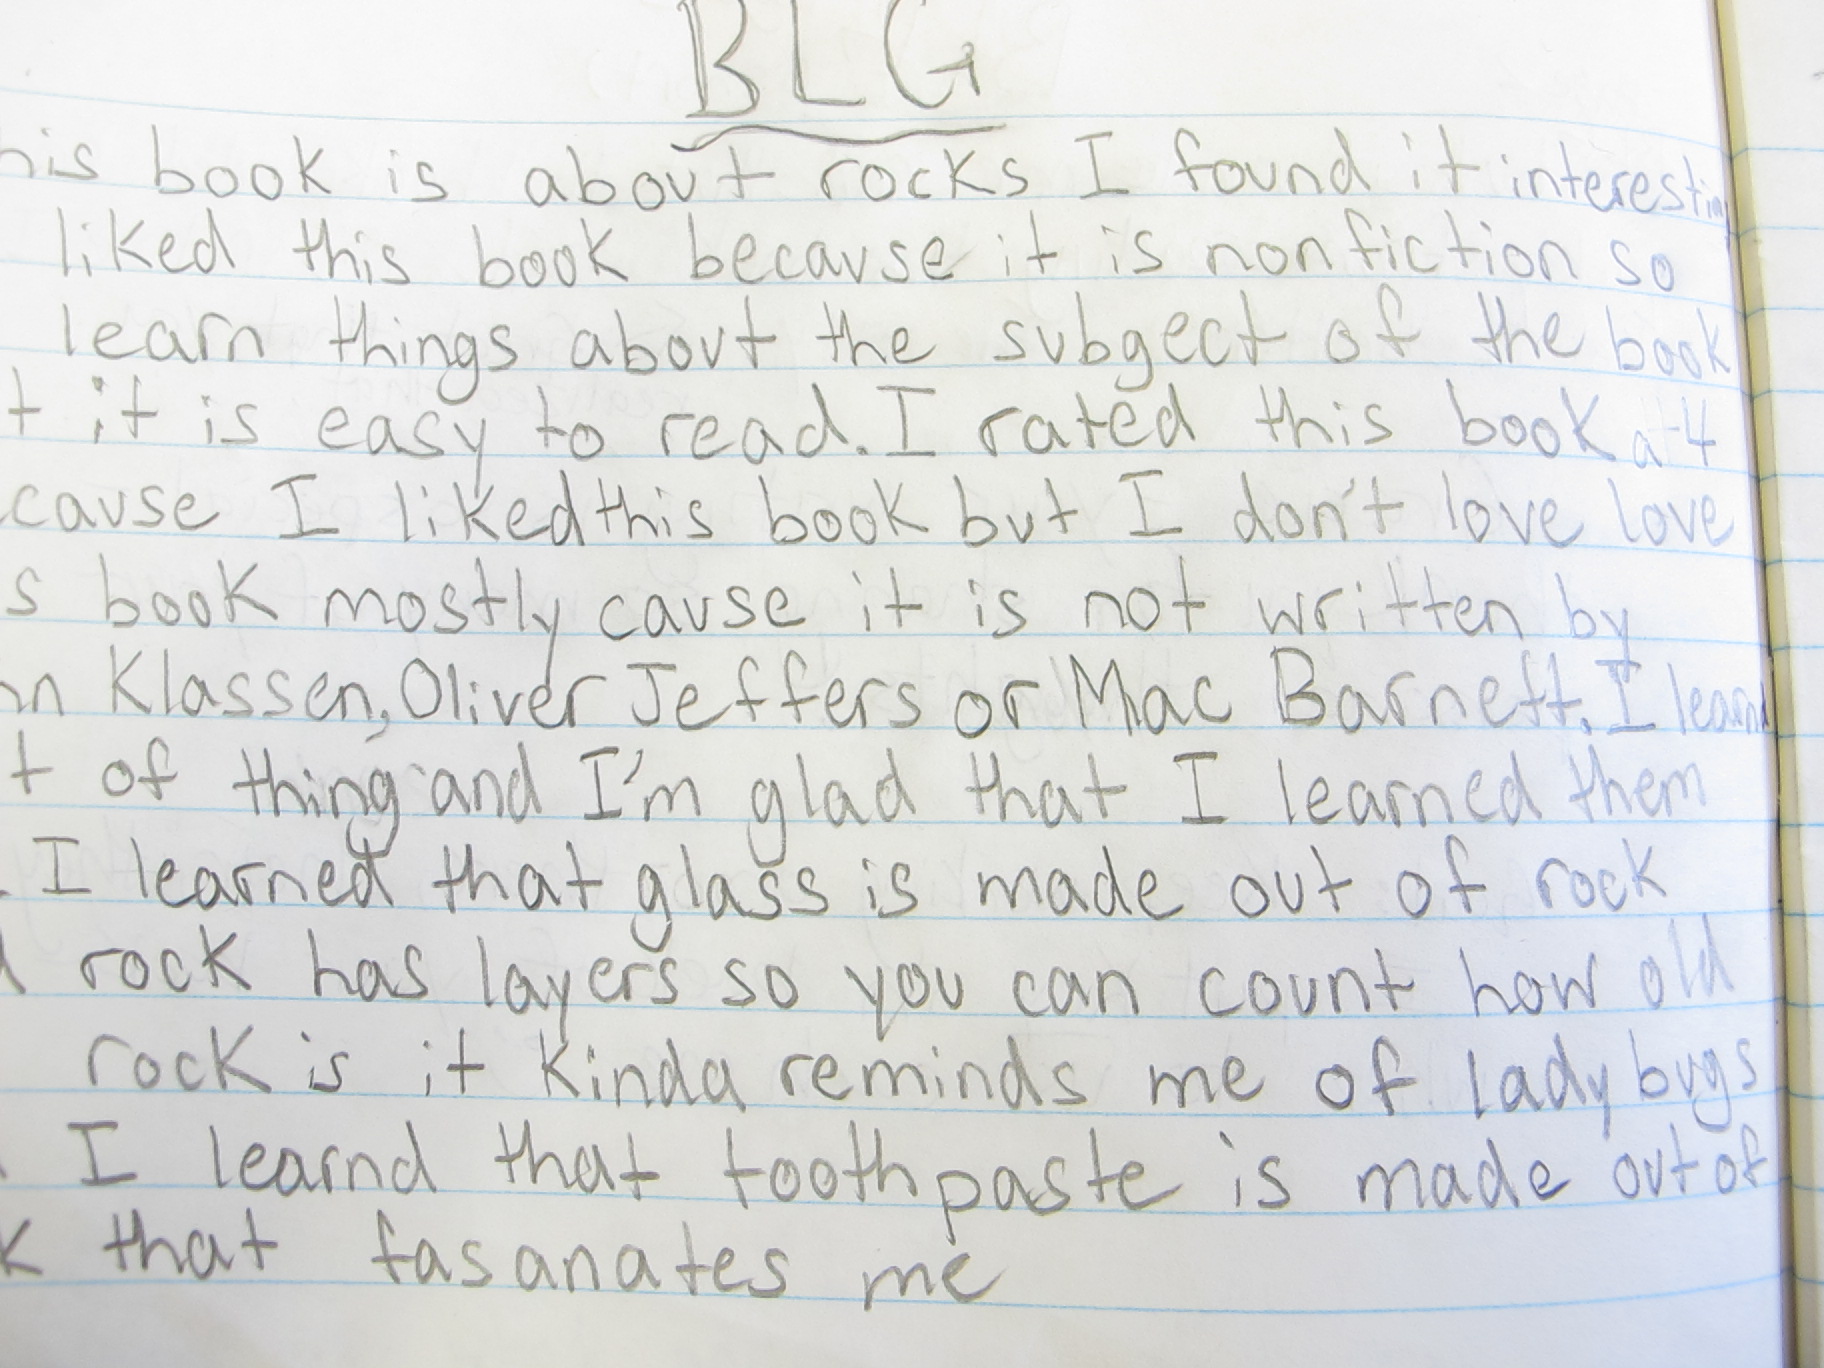 BLG
his book is about rocks I found it interestin
liked this book because it is nonfiction so
learn things about the subgect of the book
t it is easy to read. I rated this book a 4
cause I liked this book but I don't love love
s book mostly cause it is not written by
n Klassen, Oliver Jeffers or Mac Barnett. I learnd
t of thing and I'm glad that I learned them
. I learned that glass is made out of rock
d rock has layers so you can count how old
rock is it kinda reminds me of lady bugs
. I learnd that toothpaste is made out of
k that fasanates me